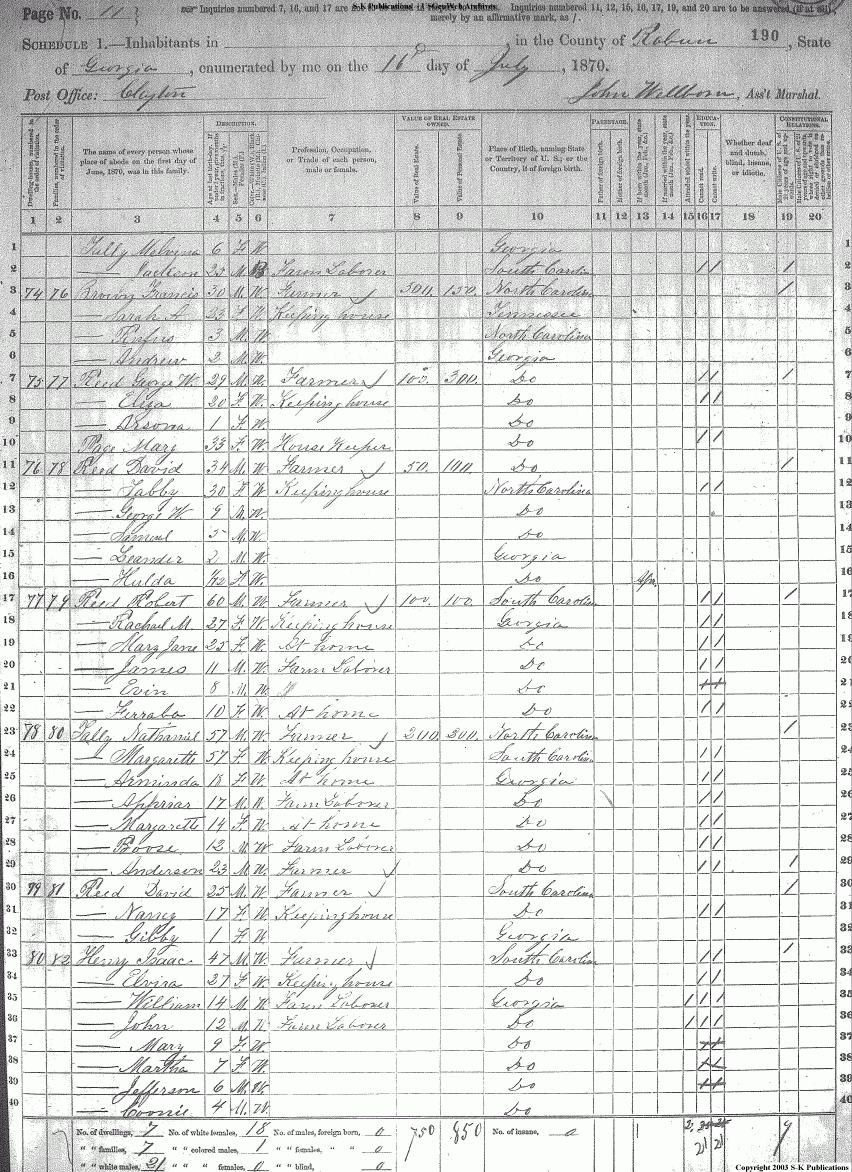 Page No. 11
Inquiries numbered 7, 16, and 17 are not to be asked Inquiries numbered 11, 12, 15, 16, 17, 19, and 20 are to be answered (if at all)
S-K Publications
merely by an affirmative mark, as /.
SCHEDULE 1.—Inhabitants in , in the County of Rabun 190 , State
of Georgia , enumerated by me on the 16th day of July , 1870.
Post Office: Clayton John Wellborn, Ass't Marshal.
DESCRIPTION. VALUE OF REAL ESTATE OWNED. PARENTAGE. EDUCATION. CONSTITUTIONAL RELATIONS.
The name of every person whose place of abode on the first day of June, 1870, was in this family.
Profession, Occupation, or Trade of each person, male or female.
Value of Real Estate.
Value of Personal Estate.
Place of Birth, naming State or Territory of U. S.; or the Country, if of foreign birth.
Father of foreign birth.
Mother of foreign birth.
Attended school within the year.
Cannot read.
Cannot write.
Whether deaf and dumb, blind, insane, or idiotic.
1 2 3 4 5 6 7 8 9 10 11 12 13 14 15 16 17 18 19 20
1 Tally Melvina 6 F. W. Georgia 1
2 — Jackson 25 M. B Farm Laborer South Carolin / / / 2
3 74 76 Brown Francis 30 M. W. Farmer 500. 150. North Carolina / 3
4 — Sarah A 23 F. W. Keeping house Tennessee 4
5 — Rufus 3 M. W. North Carolina 5
6 — Andrew 2 M. W. Georgia 6
7 75 77 Reed George W. 29 M. W. Farmer 100. 300. Do / / / 7
8 — Eliza 20 F. W. Keeping house Do / / 8
9 — Arsona 1 F. W. Do 9
10 Page Mary 33 F. W. House Keeper Do / / 10
11 76 78 Reed David 34 M. W. Farmer 50. 100. Do / 11
12 — Tabby 30 F. W. Keeping house North Carolina / / 12
13 — George W. 9 M. W. Do 13
14 — Samuel 5 M. W. Do 14
15 — Leander 2 M. W. Georgia 15
16 — Hulda F. W. Do Apr. 16
17 77 79 Reed Robert 60 M. W. Farmer 100. 100. South Carolin / / / 17
18 — Rachael M 27 F. W. Keeping house Georgia / / 18
19 — Mary Jane 25 F. W. At home Do / / 19
20 — James 11 M. W. Farm Laborer Do / / 20
21 — Evin 8 M. W. Do 21
22 — Ferraba 10 F. W. At home Do / / 22
23 78 80 Tally Nathaniel 57 M. W. Farmer 200. 200. North Carolin / 23
24 — Margarette 57 F. W. Keeping house South Carolina / / 24
25 — Arminda 18 F. W. At home Georgia / / 25
26 — Appriar 17 M. W. Farm Laborer Do / / 26
27 — Margarette 14 F. W. At home Do / / 27
28 — Boose 12 M. W. Farm Laborer Do / / 28
29 — Anderson 23 M. W. Farmer Do / / / 29
30 79 81 Reed David 25 M. W. Farmer South Carolin / 30
31 — Nancy 17 F. W. Keeping house Do / / 31
32 — Gibby 1 F. W Georgia 32
33 80 82 Henry Isaac 47 M. W. Farmer South Carolina / / / 33
34 — Elvira 27 F. W Keeping house Do / / 34
35 — William 14 M. W. Farm Laborer Georgia / / / 35
36 — John 12 M. W. Farm Laborer Do / / / 36
37 — Mary 9 F. W. Do 37
38 — Martha 7 F. W. Do 38
39 — Jefferson 6 M. W. Do 39
40 — Coonie 4 M. W. Do 40
No. of dwellings, 7 No. of white females, 18 No. of males, foreign born, 0 750 850 No. of insane, 0 1 9
" " families, 7 " " colored males, 1 " " females, " " 0 21 21
" " white males, 21 " " " females, 0 " " blind, 0
Copyright 2003 S-K Publications